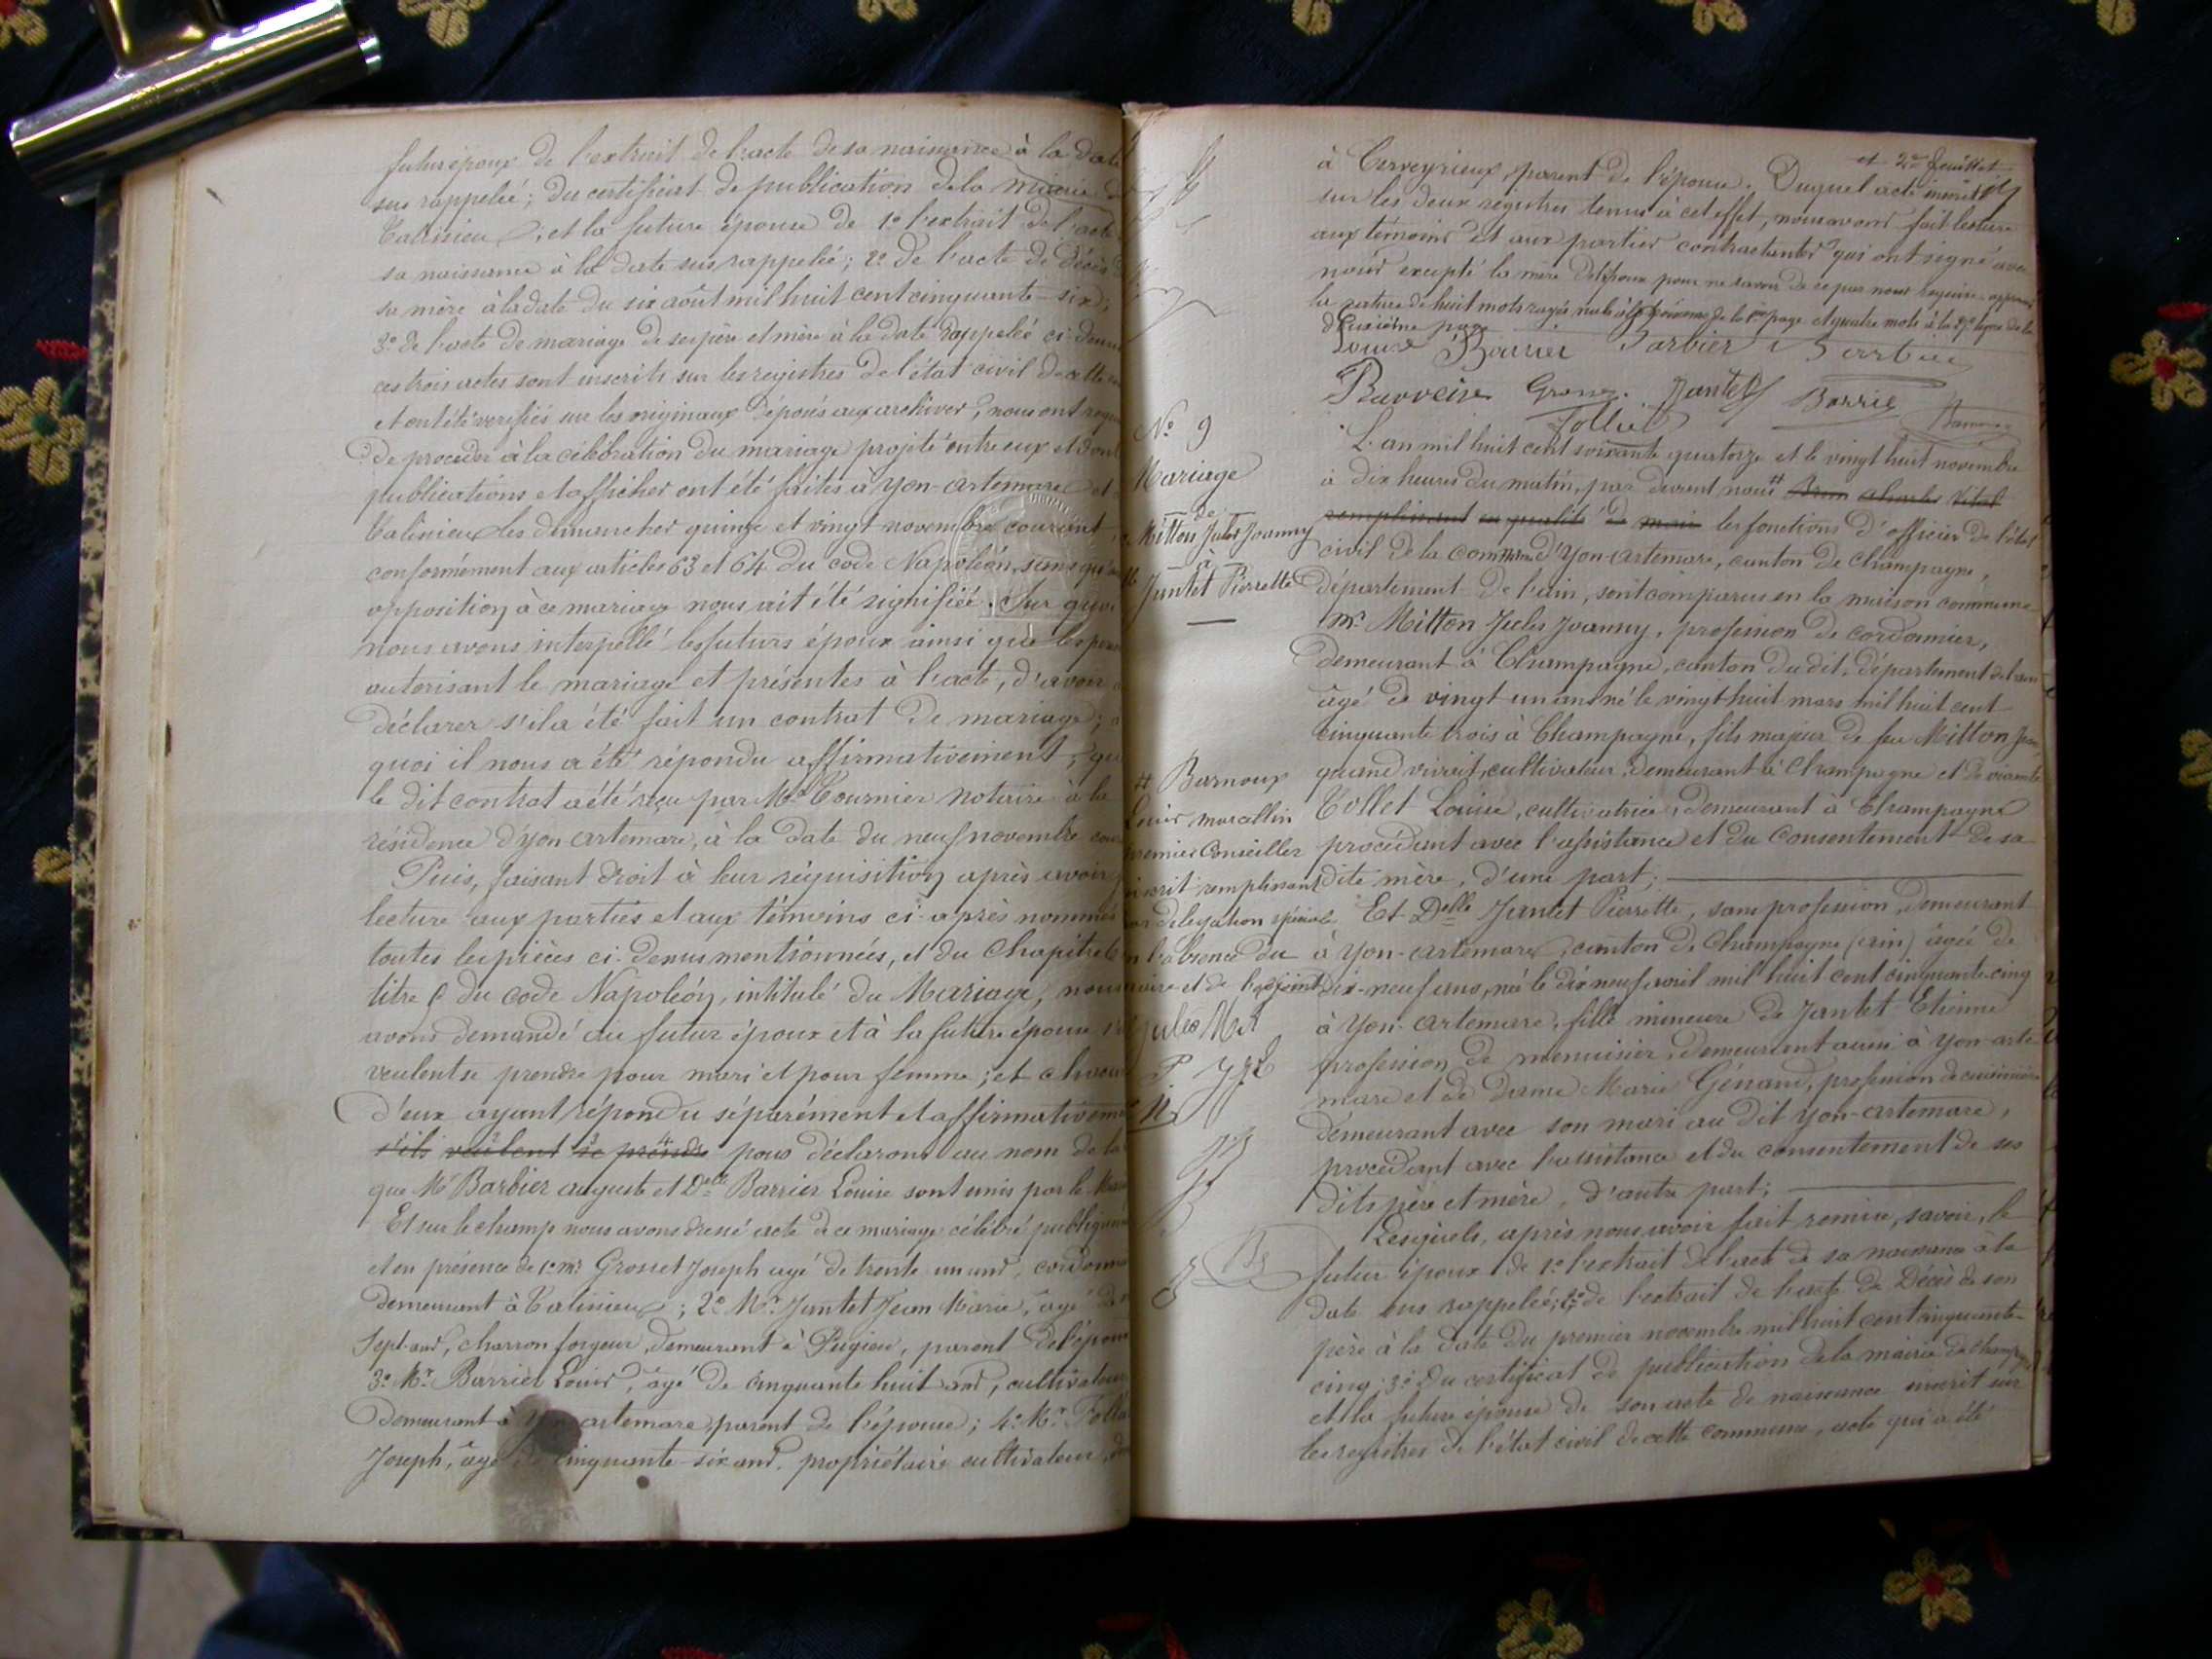 futur époux de l'extrait de l'acte de sa naissance à la date
sus rappelée ; du certificat de publication de la mairie
Talissieu ; et la future épouse de 1° l'extrait de l'acte
sa naissance à la date sus rappelée ; 2° de l'acte de décès
sa mère à la date du six août mil huit cent cinquante-six ;
3° de l'acte de mariage de ses père et mère à la date rappelée ci-dessus
ces trois actes sont inscrits sur les registres de l'état civil de cette
et ont été vérifiés sur les originaux déposés aux archives, nous ont requis
de procéder à la célébration du mariage projeté entre eux et dont
publications et affiches ont été faites à Yon-artemare et
Talissieu les dimanches quinze et vingt novembre courant
conformément aux articles 63 et 64 du code Napoléon, sans qu'
opposition à ce mariage nous ait été signifiée. Sur quoi
nous avons interpellé les futurs époux ainsi que les
autorisant le mariage et présentes à l'acte, d'avoir
déclarer s'il a été fait un contrat de mariage ;
quoi il nous a été répondu affirmativement ;
le dit contrat a été reçu par Me Tournier notaire à la
résidence d'yon-artemare, à la date du neuf novembre
Puis, faisant droit à leur réquisition après avoir
lecture aux parties et aux témoins ci-après nommés
toutes les pièces ci-dessus mentionnées, et du chapitre
titre 5 du code Napoléon, intitulé du Mariage, nous
avons demandé au futur époux et à la future épouse
veulent se prendre pour mari et pour femme ; et chacun
d'eux ayant répondu séparément et affirmativement
s'ils veulent se prendre nous déclarons au nom de la
que Mr Barbier auguste et Delle Barrier Louise sont unis par le
Et sur le champ nous avons dressé acte de ce mariage célébré publiquement
et en présence de 1° Mr Grosset Joseph agé de trente un ans, cordonnier
demeurant à Talissieu ; 2° Mr Jantet Jean Marie, âgé de
sept ans, charron forgeur, demeurant à Pugieu, parent de l'époux
3° Mr Barrier Louis, âgé de cinquante huit ans, cultivateur
demeurant à Yon artemare, parent de l'épouse ; 4° Mr
Joseph, âgé de cinquante-six ans, propriétaire cultivateur,
et 2me feuillet
à Cerveyrieux, parent de l'épouse. Duquel acte inscrit
sur les deux registres tenus à cet effet, nous avons fait lecture
aux témoins et aux parties contractantes qui ont signé avec
nous excepté la mère de l'époux pour ne savoir de ce par nous requise
deuxième page
Louise Barrier Barbier Barbier
Jantet Barrier
Tollet
N° 9
Mariage
de
Mitton Jules Joanny
à
Jantet Pierrette
L'an mil huit cent soixante quatorze et le vingt huit novembre
à dix heures du matin, par devant nous # Brun Charles Vital
remplissant en qualité de maire les fonctions d'officier de l'état
civil de la commune d'Yon-artemare, canton de champagne,
département de l'ain, sont comparus en la maison commune
Mr Mitton Jules Joanny, profession de cordonnier,
demeurant à Champagne, canton du dit, département de l'ain
âgé de vingt un ans né le vingt huit mars mil huit cent
cinquante trois à Champagne, fils majeur de feu Mitton
quand vivait, cultivateur, demeurant à Champagne et de vivante
Tollet Louise, cultivatrice, demeurant à Champagne
procédant avec l'assistance et du consentement de sa
dite mère, d'une part ;
# Barnoux
Louis marcellin
premier Conseiller
inscrit remplissant
par délégation spéciale
en l'absence du
maire et de l'adjoint
Et Delle Jantet Pierrette, sans profession, demeurant
à Yon-artemare, canton de Champagne (ain) âgée de
dix-neuf ans, née le dix neuf avril mil huit cent cinquante cinq
à Yon-artemare, fille mineure de Jantet Etienne
profession de menuisier, demeurant aussi à yon-arte
mare et de Dame Marie Génand, profession de cuisinière
demeurant avec son mari au dit Yon-artemare,
procédant avec l'assistance et du consentement de ses
dits père et mère, d'autre part ;
Lesquels, après nous avoir fait remise, savoir, le
futur époux de 1° l'extrait de l'acte de sa naissance à la
date sus rappelée ; 2° de l'extrait de l'acte de décès de son
père à la date du premier novembre mil huit cent cinquante-
cinq ; 3° du certificat de publication de la mairie de champagne
et la future épouse de son acte de naissance inscrit sur
les registres de l'état civil de cette commune, acte qui a été